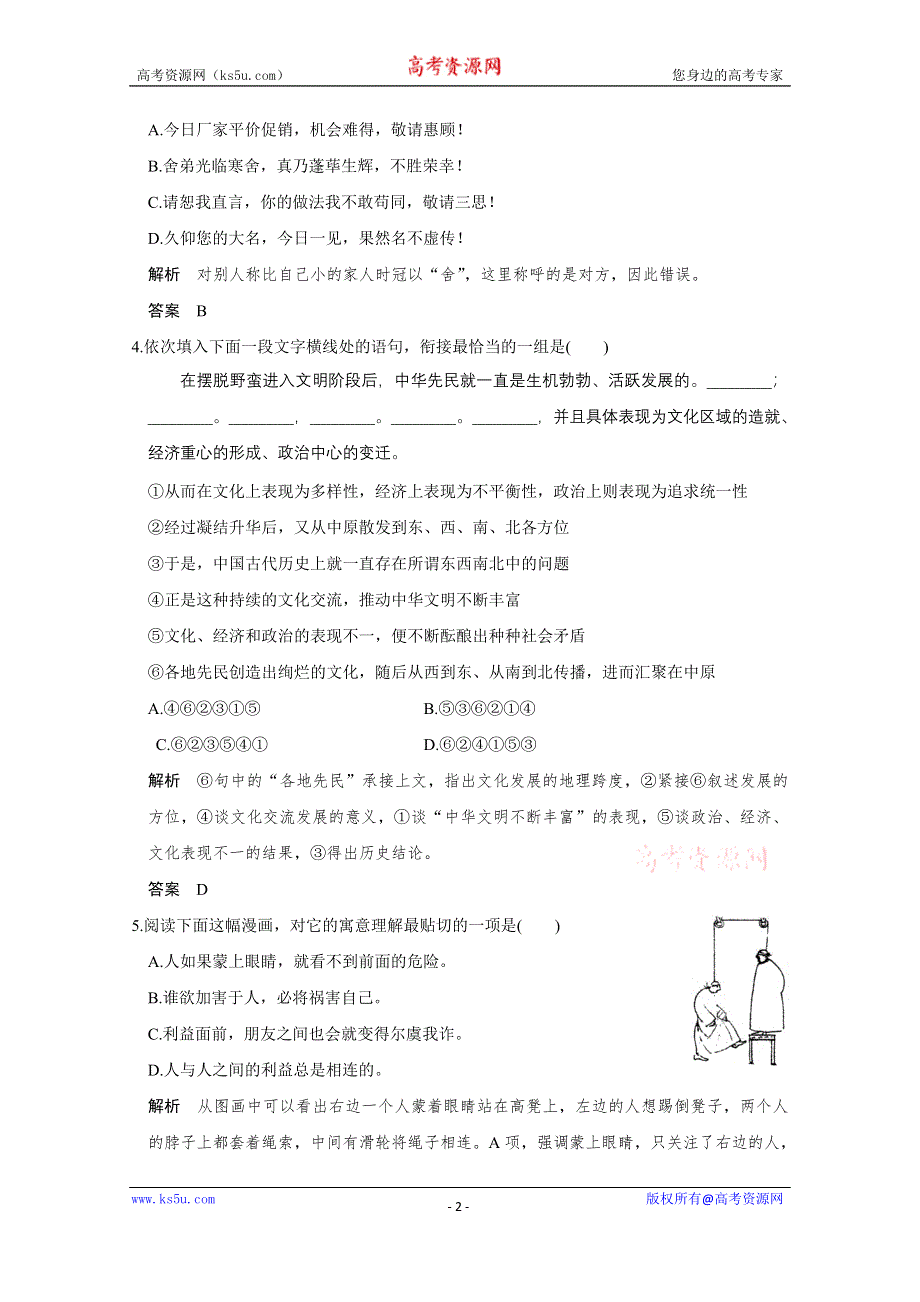 高考资源网（ks5u.com） 高考资源网 您身边的高考专家
A.今日厂家平价促销，机会难得，敬请惠顾！
B.舍弟光临寒舍，真乃蓬荜生辉，不胜荣幸！
C.请恕我直言，你的做法我不敢苟同，敬请三思！
D.久仰您的大名，今日一见，果然名不虚传！
解析 对别人称比自己小的家人时冠以“舍”，这里称呼的是对方，因此错误。
答案 B
4.依次填入下面一段文字横线处的语句，衔接最恰当的一组是( )
在摆脱野蛮进入文明阶段后，中华先民就一直是生机勃勃、活跃发展的。________；
________。________，________。________。________，并且具体表现为文化区域的造就、
经济重心的形成、政治中心的变迁。
①从而在文化上表现为多样性，经济上表现为不平衡性，政治上则表现为追求统一性
②经过凝结升华后，又从中原散发到东、西、南、北各方位
③于是，中国古代历史上就一直存在所谓东西南北中的问题
④正是这种持续的文化交流，推动中华文明不断丰富
⑤文化、经济和政治的表现不一，便不断酝酿出种种社会矛盾
⑥各地先民创造出绚烂的文化，随后从西到东、从南到北传播，进而汇聚在中原
A.④⑥②③①⑤ B.⑤③⑥②①④
C.⑥②③⑤④① D.⑥②④①⑤③
解析 ⑥句中的“各地先民”承接上文，指出文化发展的地理跨度，②紧接⑥叙述发展的
方位，④谈文化交流发展的意义，①谈“中华文明不断丰富”的表现，⑤谈政治、经济、
文化表现不一的结果，③得出历史结论。
高考资源网
答案 D
5.阅读下面这幅漫画，对它的寓意理解最贴切的一项是( )
A.人如果蒙上眼睛，就看不到前面的危险。
B.谁欲加害于人，必将祸害自己。
C.利益面前，朋友之间也会就变得尔虞我诈。
D.人与人之间的利益总是相连的。
解析 从图画中可以看出右边一个人蒙着眼睛站在高凳上，左边的人想踢倒凳子，两个人
的脖子上都套着绳索，中间有滑轮将绳子相连。A 项，强调蒙上眼睛，只关注了右边的人，
www.ks5u.com - 2 - 版权所有@高考资源网